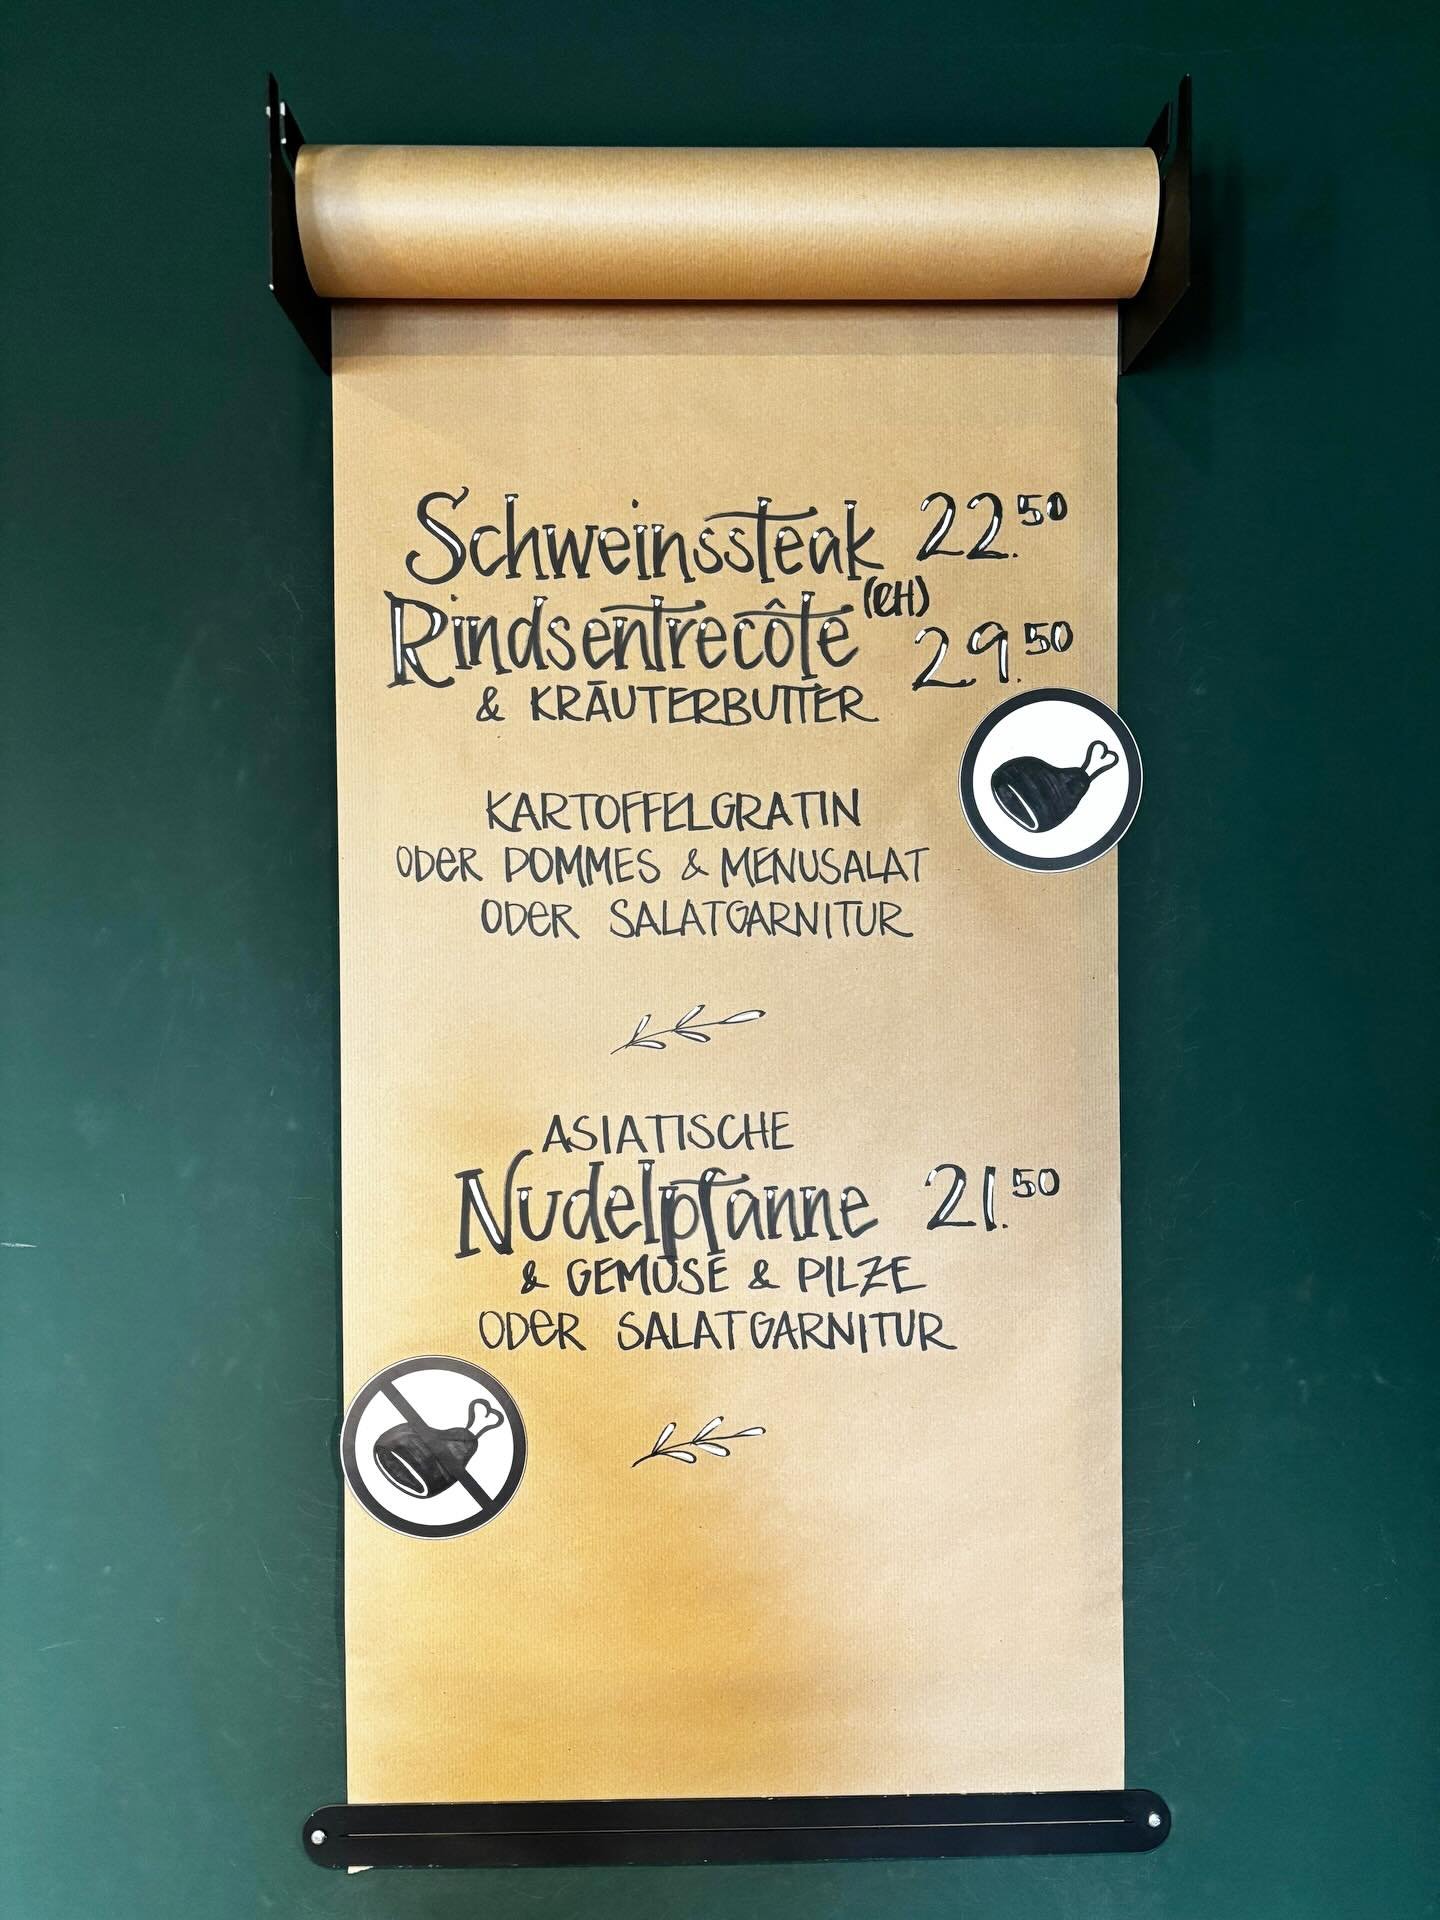 Schweinssteak 22.50
Rindsentrecôte (CH) 29.50
& KRÄUTERBUTTER
KARTOFFELGRATIN
ODER POMMES & MENUSALAT
ODER SALATGARNITUR
ASIATISCHE
Nudelpfanne 21.50
& GEMÜSE & PILZE
ODER SALATGARNITUR